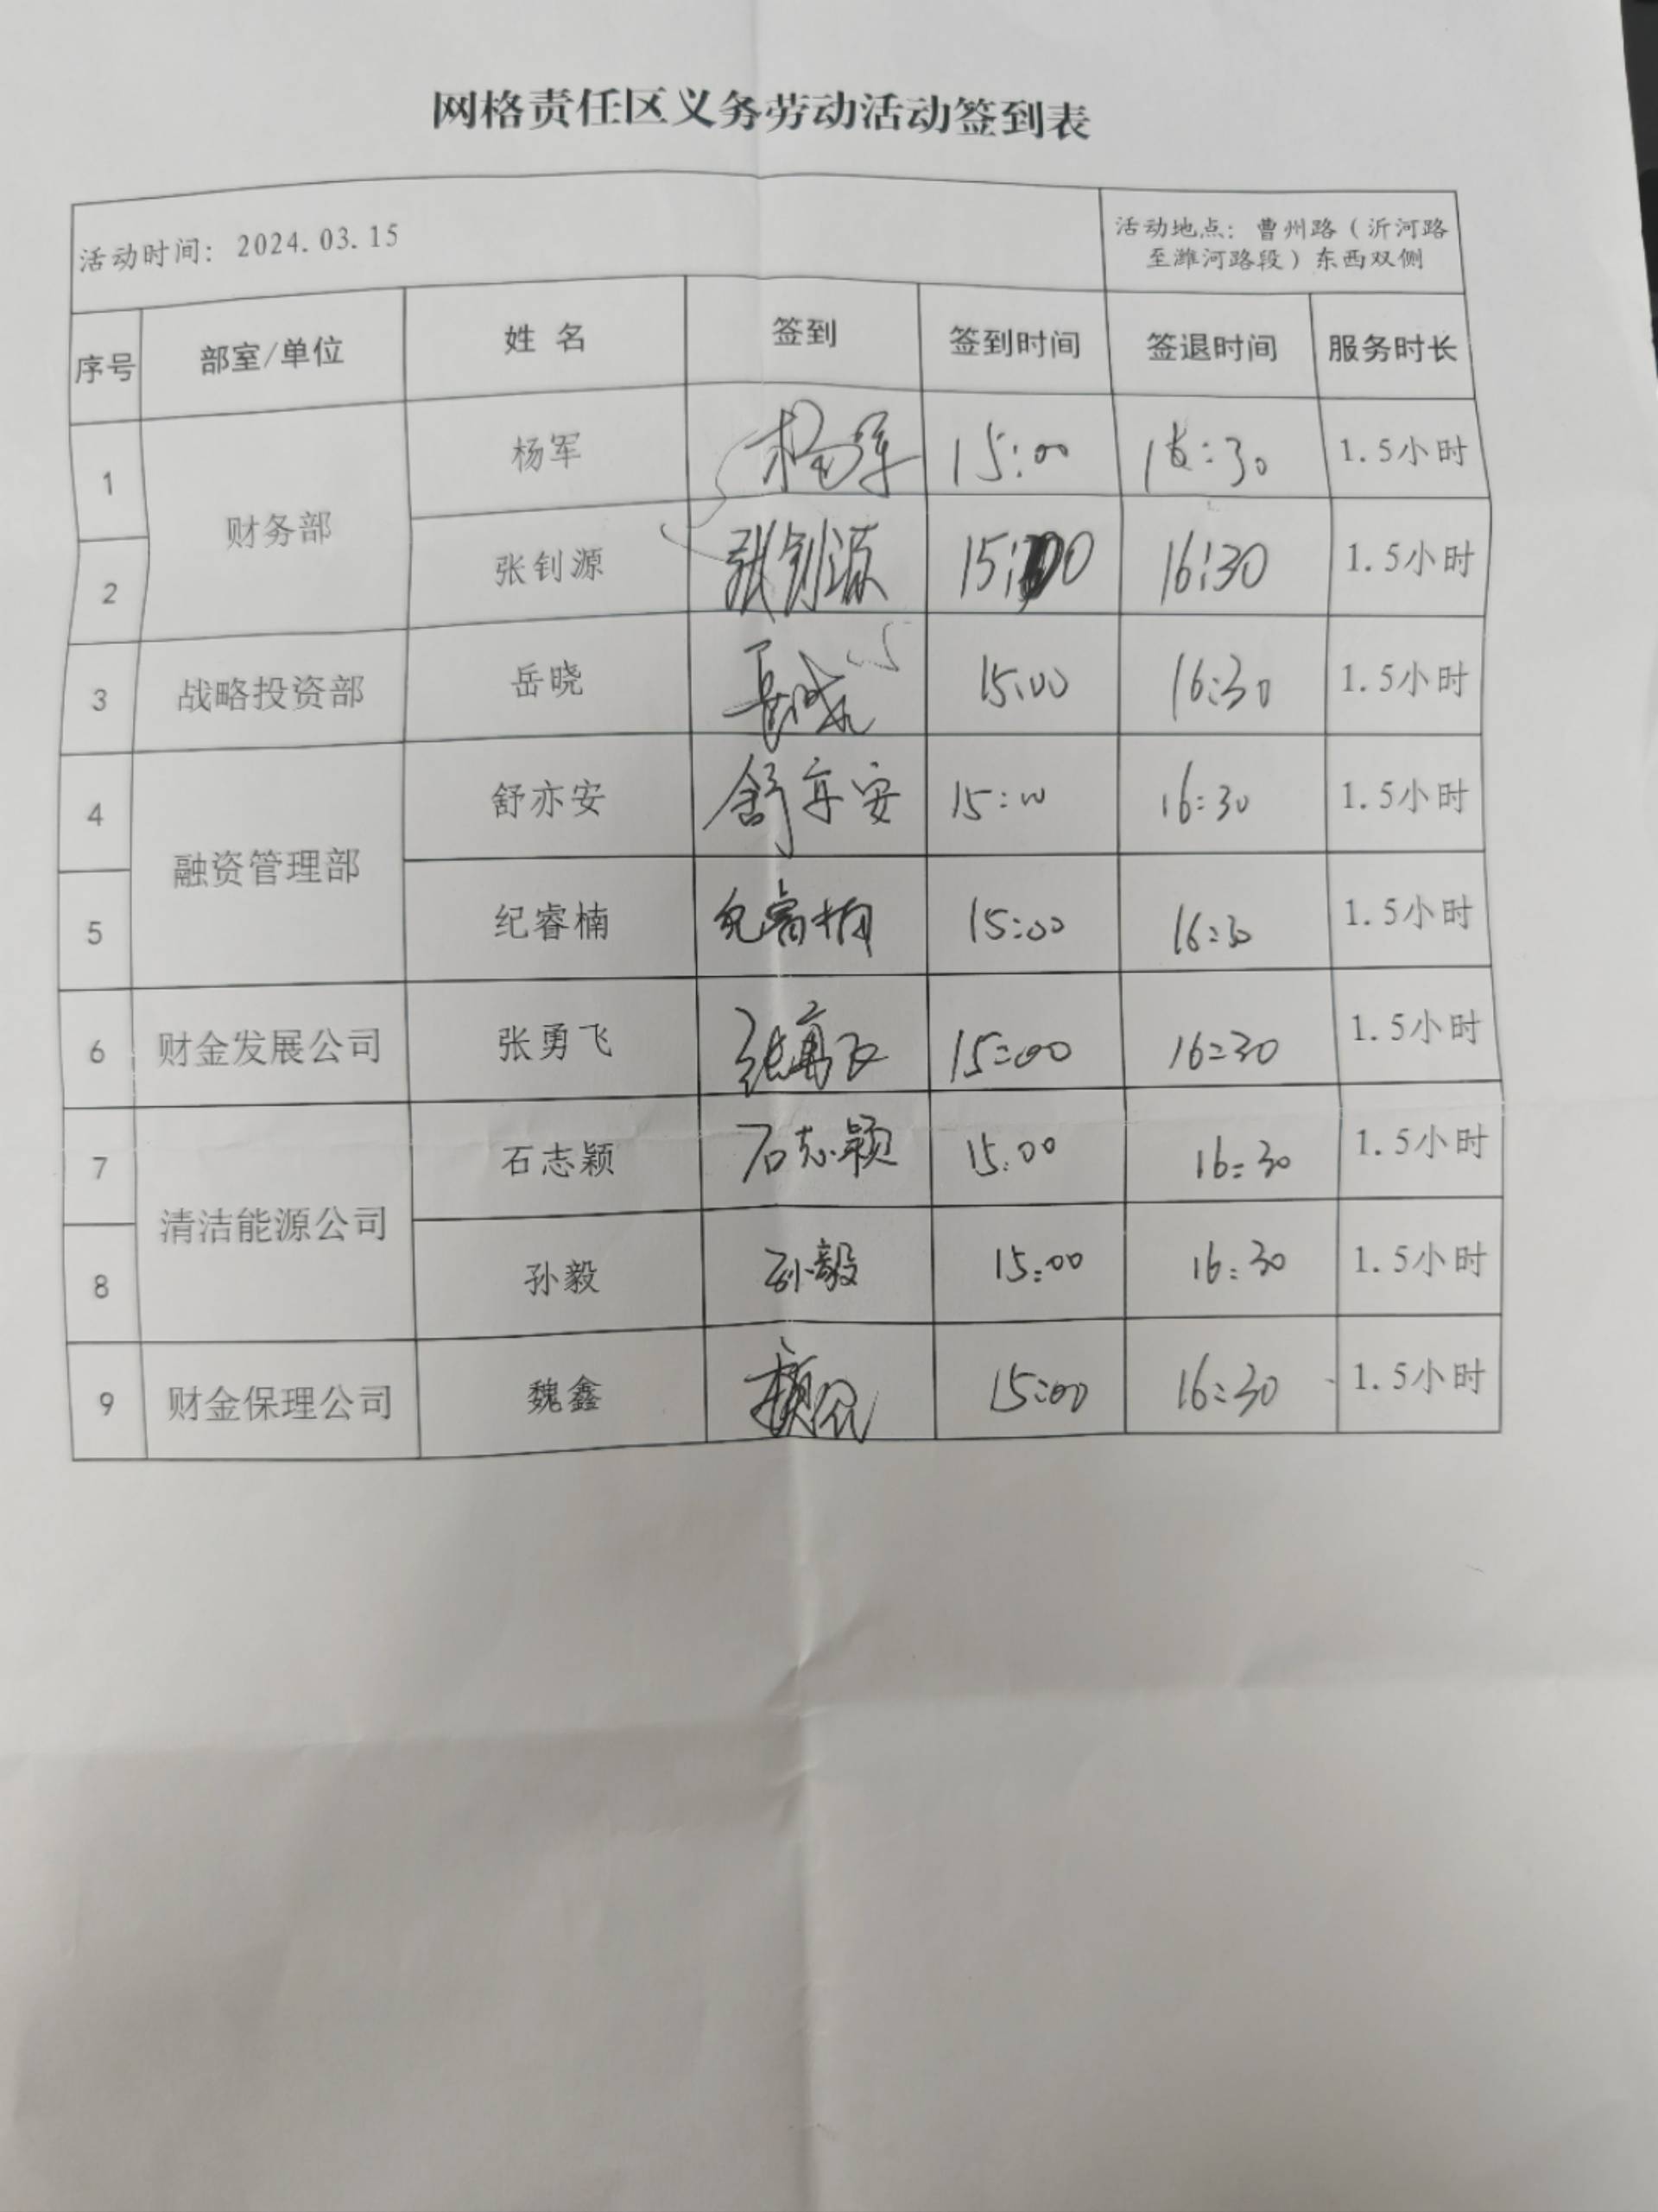 网格责任区义务劳动活动签到表
活动时间：2024.03.15
活动地点：曹州路（沂河路
至潍河路段）东西双侧
序号 部室/单位 姓 名 签到 签到时间 签退时间 服务时长
1 财务部 杨军 杨军 15:00 16:30 1.5小时
2 张钊源 张钊源 15:00 16:30 1.5小时
3 战略投资部 岳晓 15:00 16:30 1.5小时
4 融资管理部 舒亦安 舒亦安 15:00 16:30 1.5小时
5 纪睿楠 纪睿楠 15:00 16:30 1.5小时
6 财金发展公司 张勇飞 张勇飞 15:00 16:30 1.5小时
7 清洁能源公司 石志颖 石志颖 15:00 16:30 1.5小时
8 孙毅 孙毅 15:00 16:30 1.5小时
9 财金保理公司 魏鑫 15:00 16:30 1.5小时